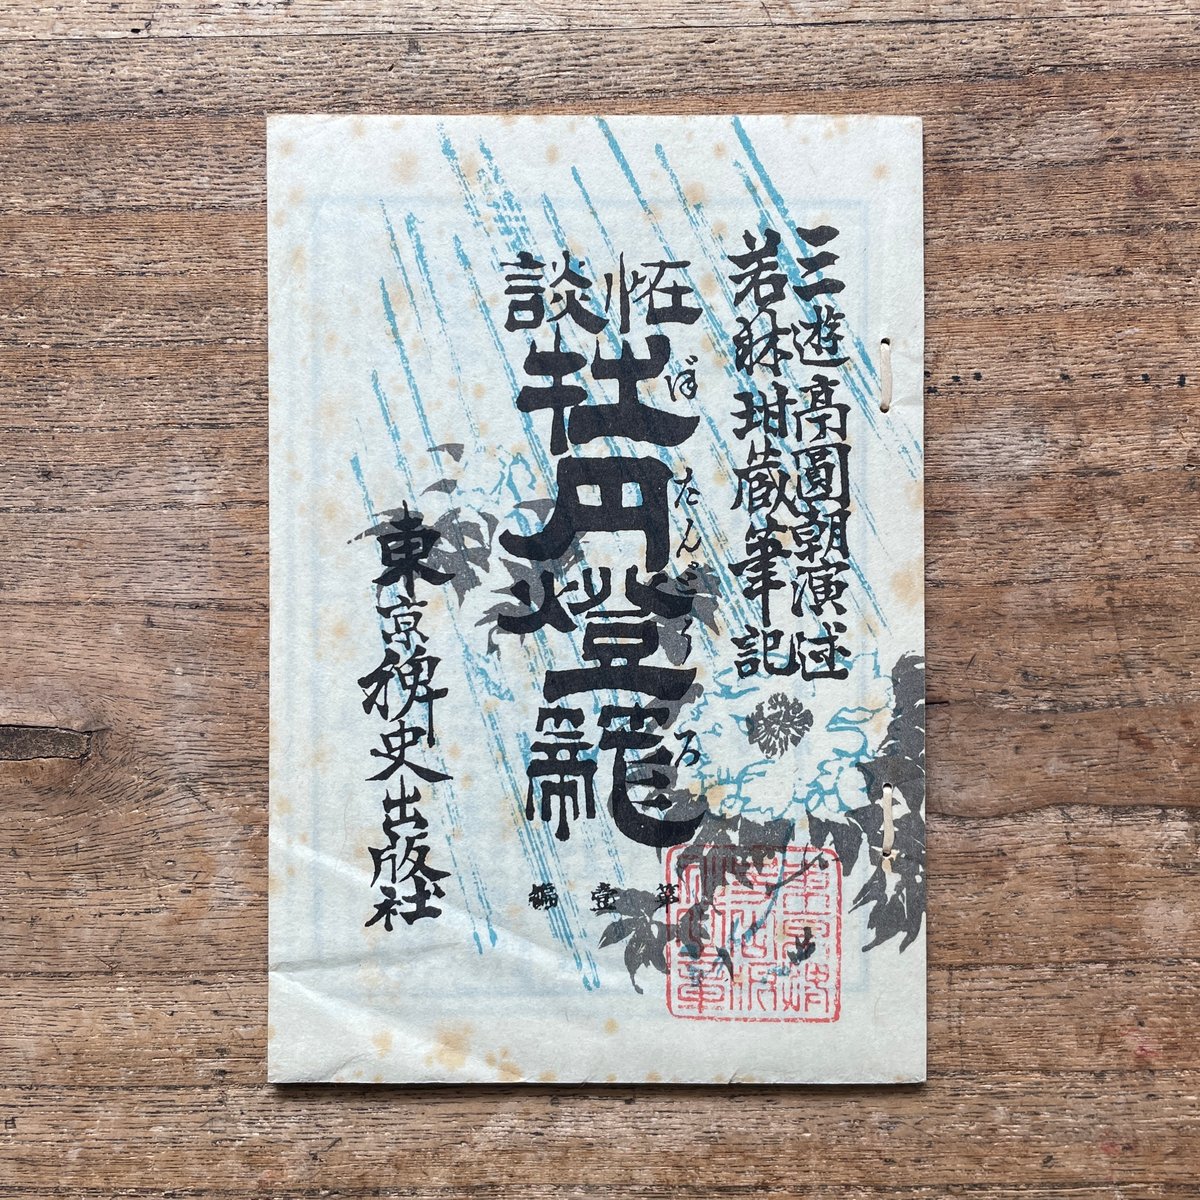 三遊亭圓朝演述
若林玵蔵筆記
怪談
牡丹燈籠
ぼたんどうろ
第壹編
東京稗史出版社